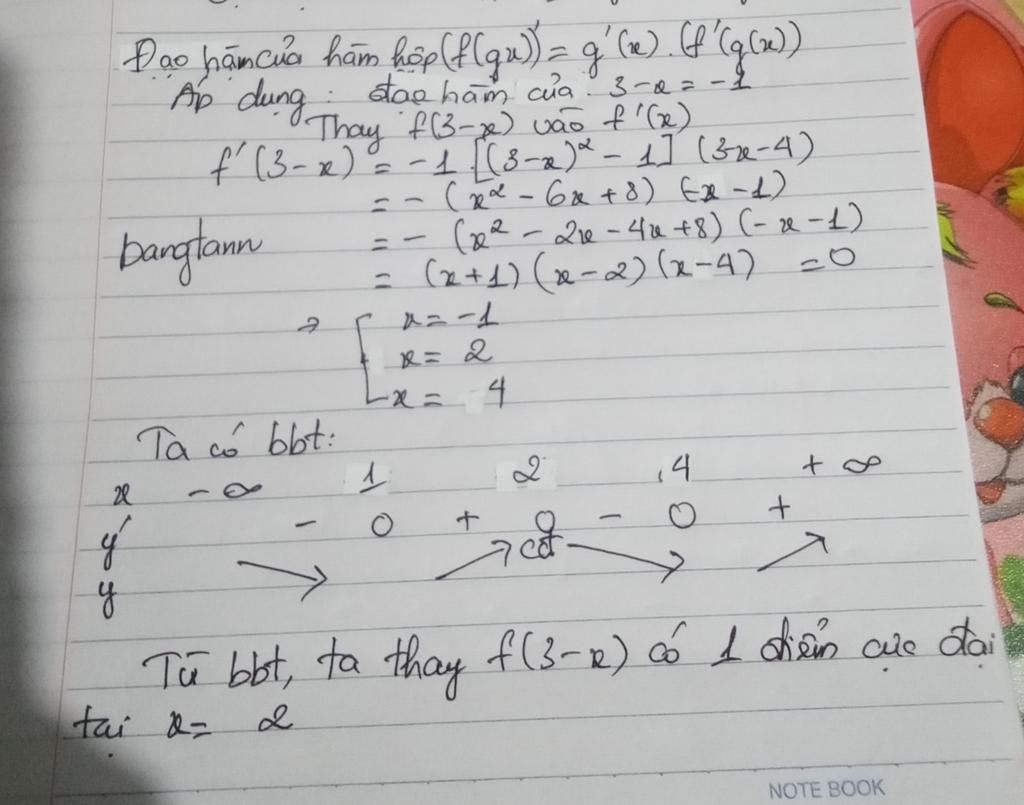 Đạo hàm của hàm hợp (f(gx))' = g'(x). (f'(g(x))
Áp dụng: đạo hàm của 3-x = -1
Thay f(3-x) vào f'(x)
f'(3-x) = -1 [(3-x)² - 1] (3-x-4)
= - (x² - 6x + 8) (-x - 1)
bangtann = - (x² - 2x - 4x + 8) (-x - 1)
= (x+1) (x-2) (x-4) = 0
→ [ x = -1
x = 2
x = 4
Ta có bbt:
x -∞ 1 2 4 +∞
y' - 0 + 0 - 0 +
cđ
y
Từ bbt, ta thay f(3-x) có 1 điểm cực đại
tại x = 2
NOTE BOOK